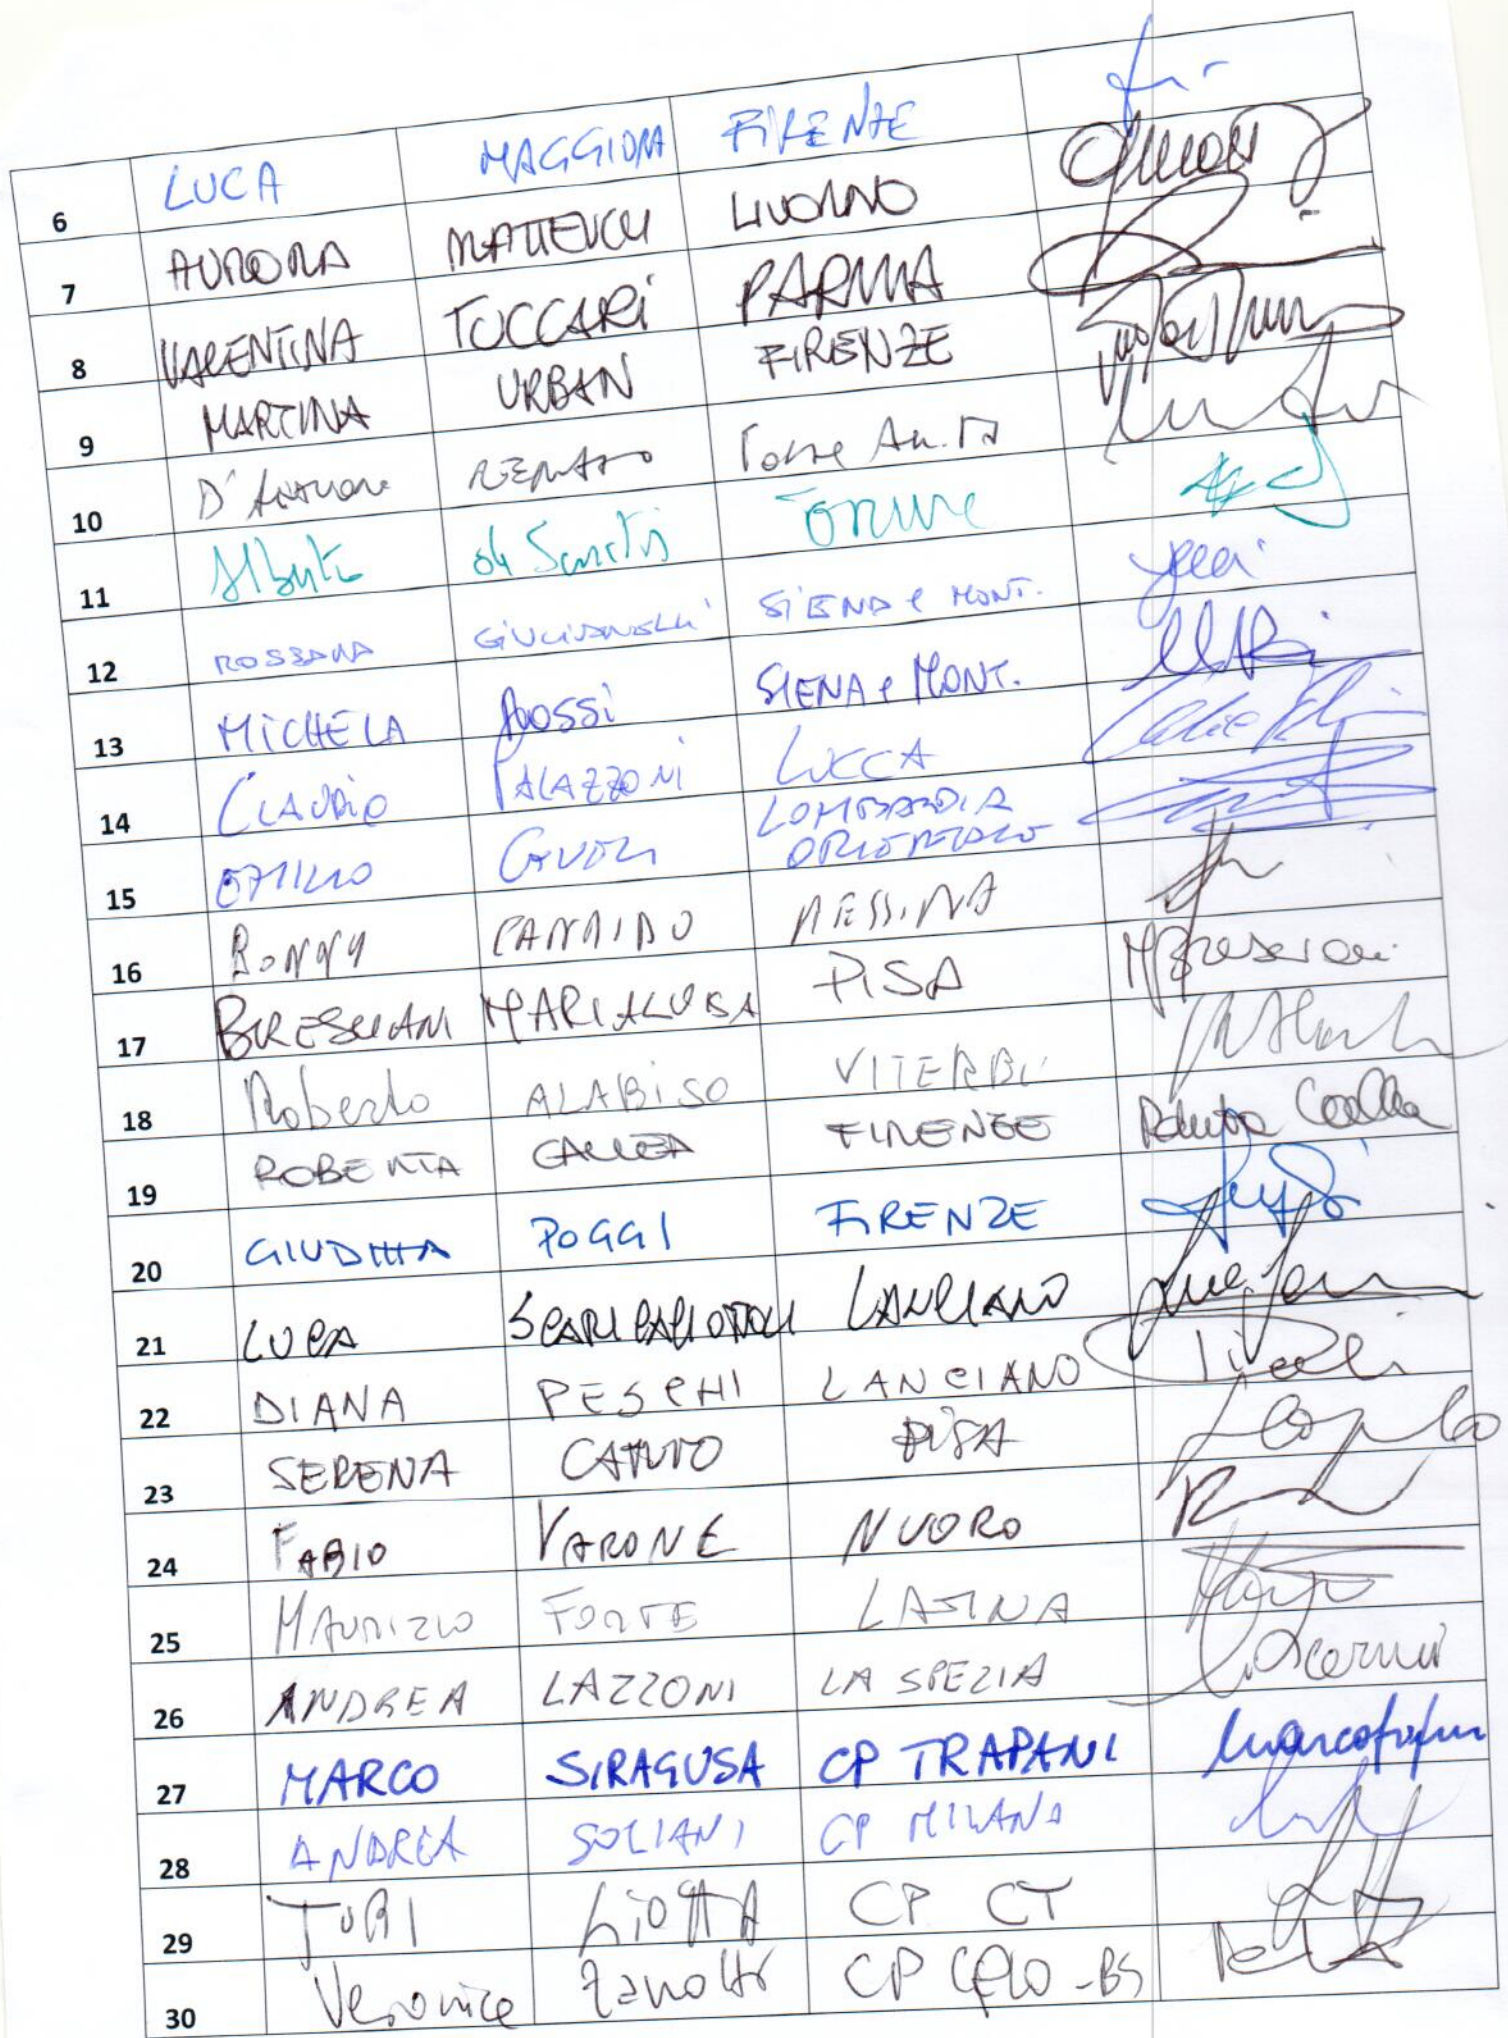 6 LUCA MAGGIORA FIRENZE
7 AURORA MATTEUCCI LIVORNO
8 VALENTINA TUCCARI PARMA
9 MARTINA URBAN FIRENZE
10 D'Antuono RENATO Torre An.ta
11 Alberto de Sanctis
12 ROSSANA GIULIANELLI SIENA e MONT.
13 MICHELA ROSSI SIENA e MONT.
14 CLAUDIO PALAZZONI LUCCA
15 EMILIO LOMBARDIA
ORIENTALE
16 BONNY CANDIDO MESSINA
17 BRESCIANI MARIALUISA PISA
18 Roberto ALABISO VITERBO
19 ROBERTA FIRENZE
20 GIUDITTA POGGI FIRENZE
21 LUCA LANCIANO
22 DIANA PESCHI LANCIANO
23 SERENA CAPUTO PISA
24 FABIO VARONE NUORO
25 MAURIZIO FORTE LATINA
26 ANDREA LAZZONI LA SPEZIA
27 MARCO SIRAGUSA CP TRAPANI
28 ANDREA SOLIANI CP MILANO
29 TURI LIOTTA CP CT
30 Veronica Zanotti CP -BS